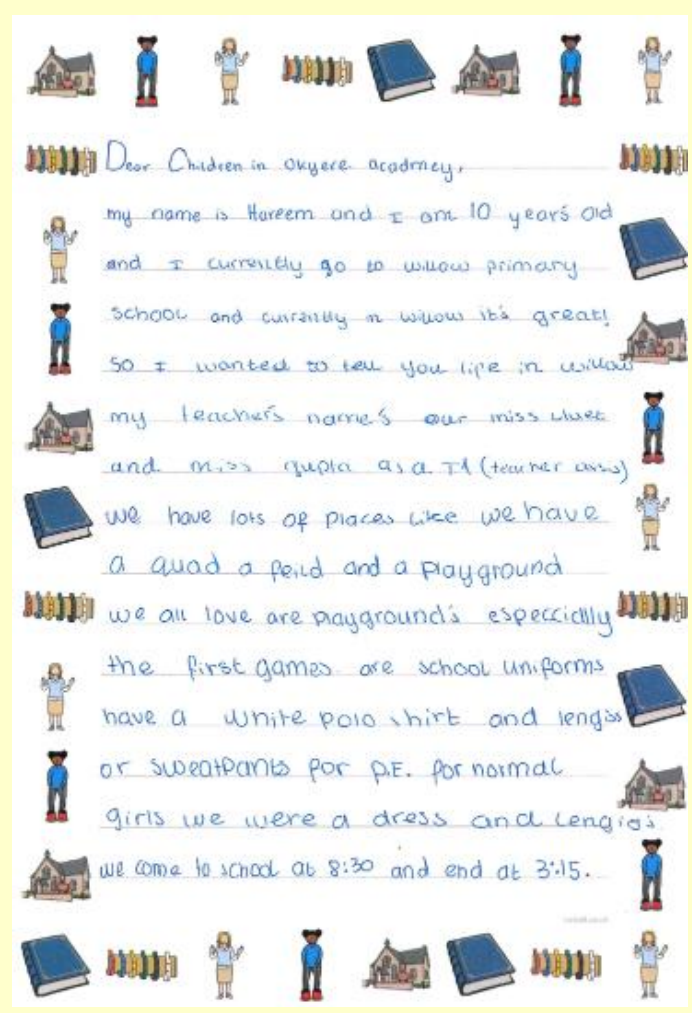 Dear Children in okyere acadmey,
my name is Hareem and I am 10 year's old
and I currently go to willow primary
school and currently in willow it's great!
So I wanted to tell you life in willow
my teacher's name's our miss
and miss gupta as a TA (teacher
we have lots of places like we have
a quad a feild and a playground
we all love are playground's especcially
the first games are school uniforms
have a white polo shirt and
or sweatpants for P.E. for normal
girls we were a dress and Lengigs
we come to school at 8:30 and end at 3:15.